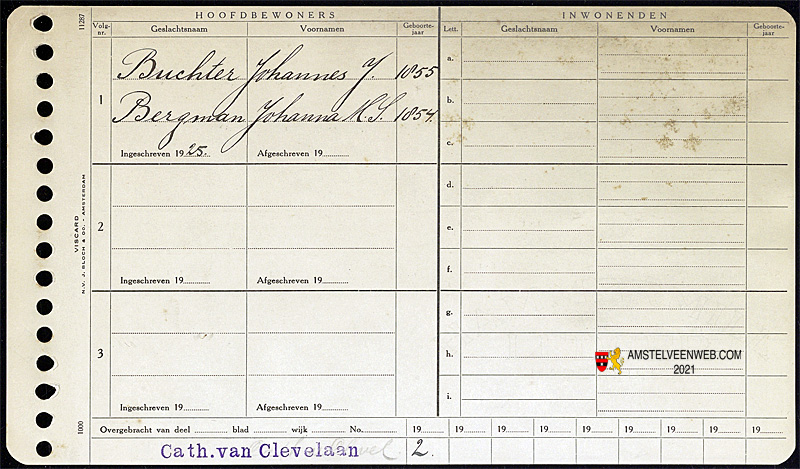 HOOFDBEWONERS
INWONENDEN
Volg-nr.
Geslachtsnaam
Voornamen
Geboorte-jaar
Lett.
Geslachtsnaam
Voornamen
Geboorte-jaar
11287
1
Buchter Johannes J. 1855
Bergman Johanna M.S. 1854.
Ingeschreven 1925.
Afgeschreven 19
2
Ingeschreven 19
Afgeschreven 19
3
Ingeschreven 19
Afgeschreven 19
a.
b.
c.
d.
e.
f.
g.
h.
i.
VISCARD
N.V. J. BLOCH & Dc. - AMSTERDAM
1000
AMSTELVEENWEB.COM
2021
Overgebracht van deel blad wijk No. 19 19 19 19 19 19 19 19 19
Cath.van Clevelaan 2.